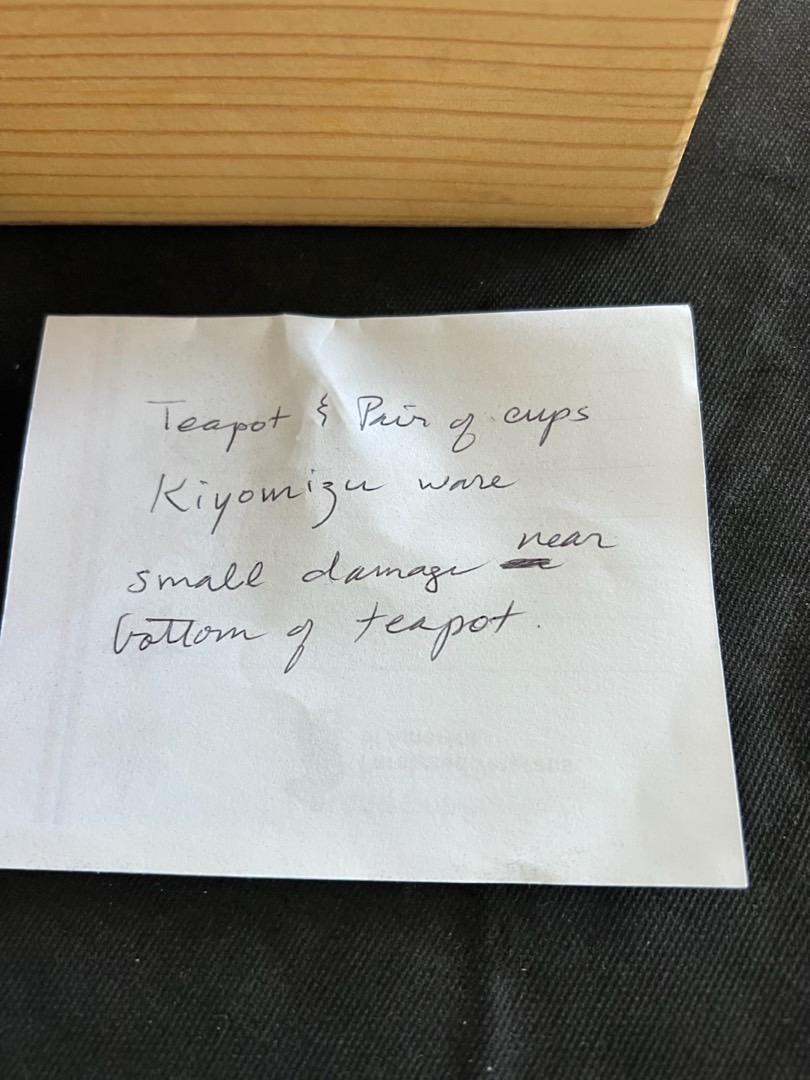 Teapot & Pair of cups
Kiyomizu ware
small damage near
bottom of teapot.